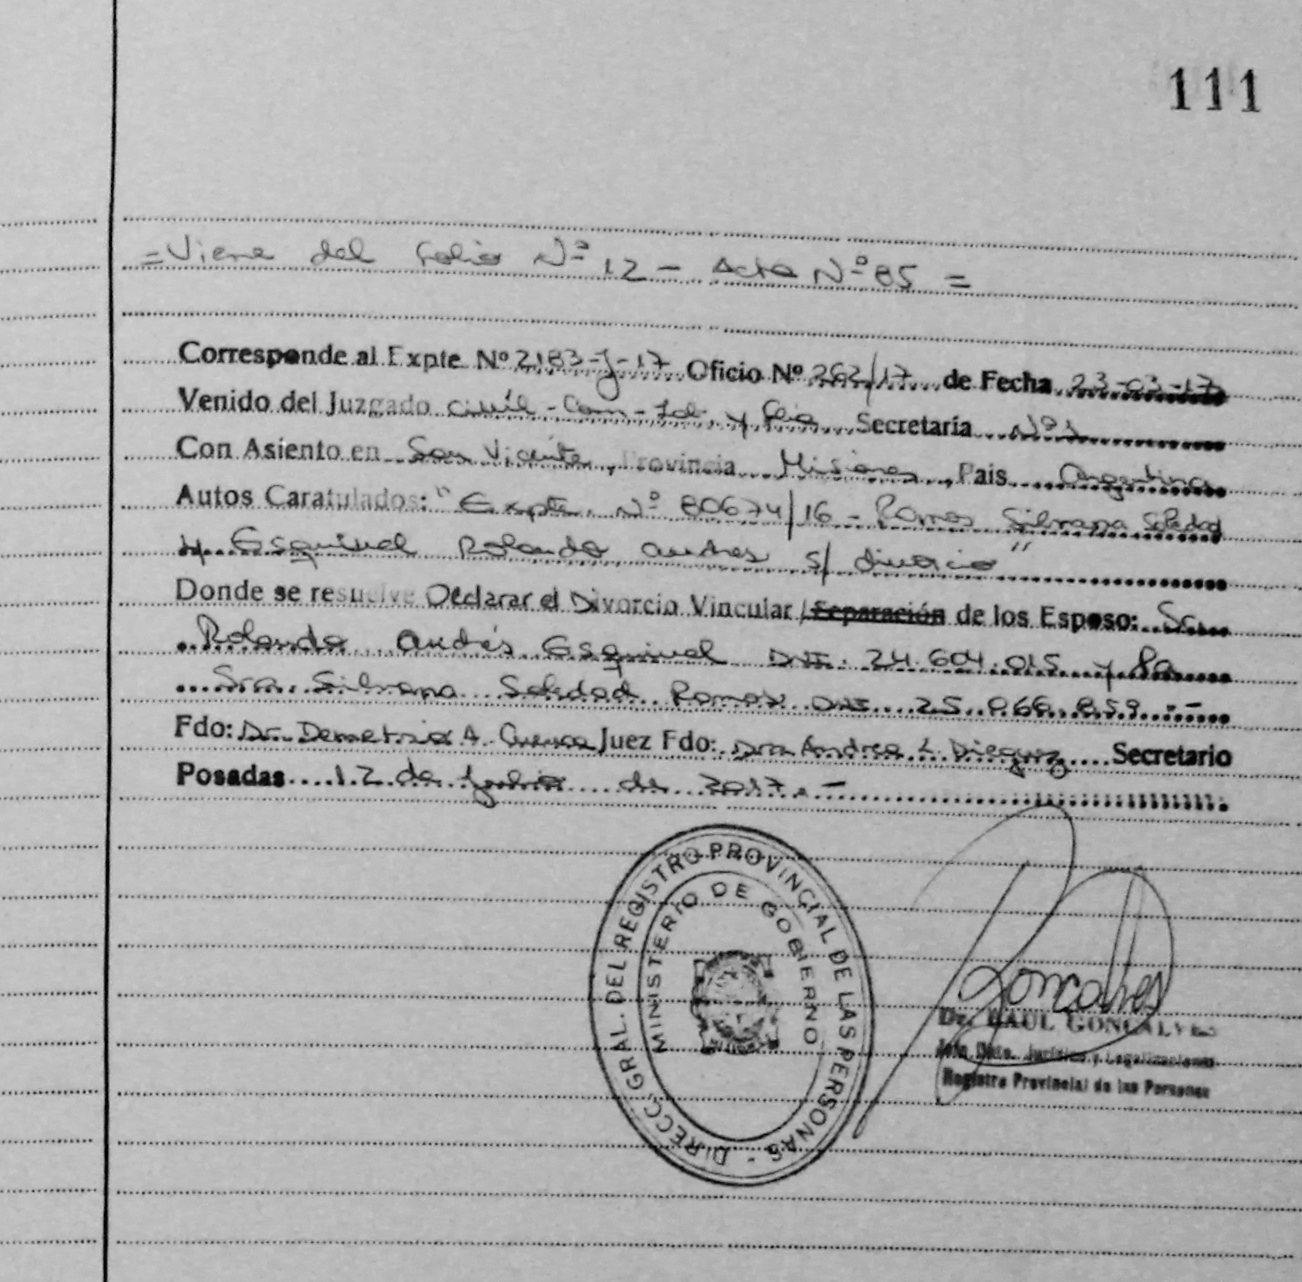 111
= Viene del folio Nº 12 - Acta Nº 85 =
Corresponde al Expte Nº 2183-J-17 Oficio Nº 262/17 de Fecha 23-03-17
Venido del Juzgado Civil - Com - Lab. y Flia Secretaría Nº 1
Con Asiento en San Vicente, Provincia Misiones, Pais Argentina
Autos Caratulados: "Expte. Nº 80674/16 - Ramos Silvana Soledad
y Esquivel Rolando andres s/ divorcio"
Donde se resuelve Declarar el Divorcio Vincular / Separación de los Esposo: Sr.
Rolando Andrés Esquivel DNI. 24.604.015 y la
Sra. Silvana Soledad Ramos DNI 25.068.859 --
Fdo: Dr. Demetrio A. Cuenca Juez Fdo: Dra Andrea L. Dieguez Secretario
Posadas 12 de Julio de 2017.-
DIRECC. GRAL. DEL REGISTRO PROVINCIAL DE LAS PERSONAS -
MINISTERIO DE GOBIERNO
Goncalves
Dr. RAUL GONCALVES
Jefe Dpto. Jurídico y Legalizaciones
Registro Provincial de las Personas